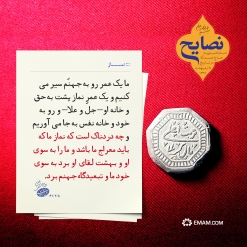 نصایح
نمـــاز
ما یک عمر رو به جهنّم سیر می
کنیم و یک عمر نماز پشت به حق
و خانه او -جلّ و علا- و رو به
خود و خانه نفس به جا می آوریم
و چه دردناک است که نماز ما که
باید معراج ما باشد و ما را به سوی
او و بهشت لقای او برد به سوی
خود ما و تبعیدگاه جهنم برد.
EMAM.COM